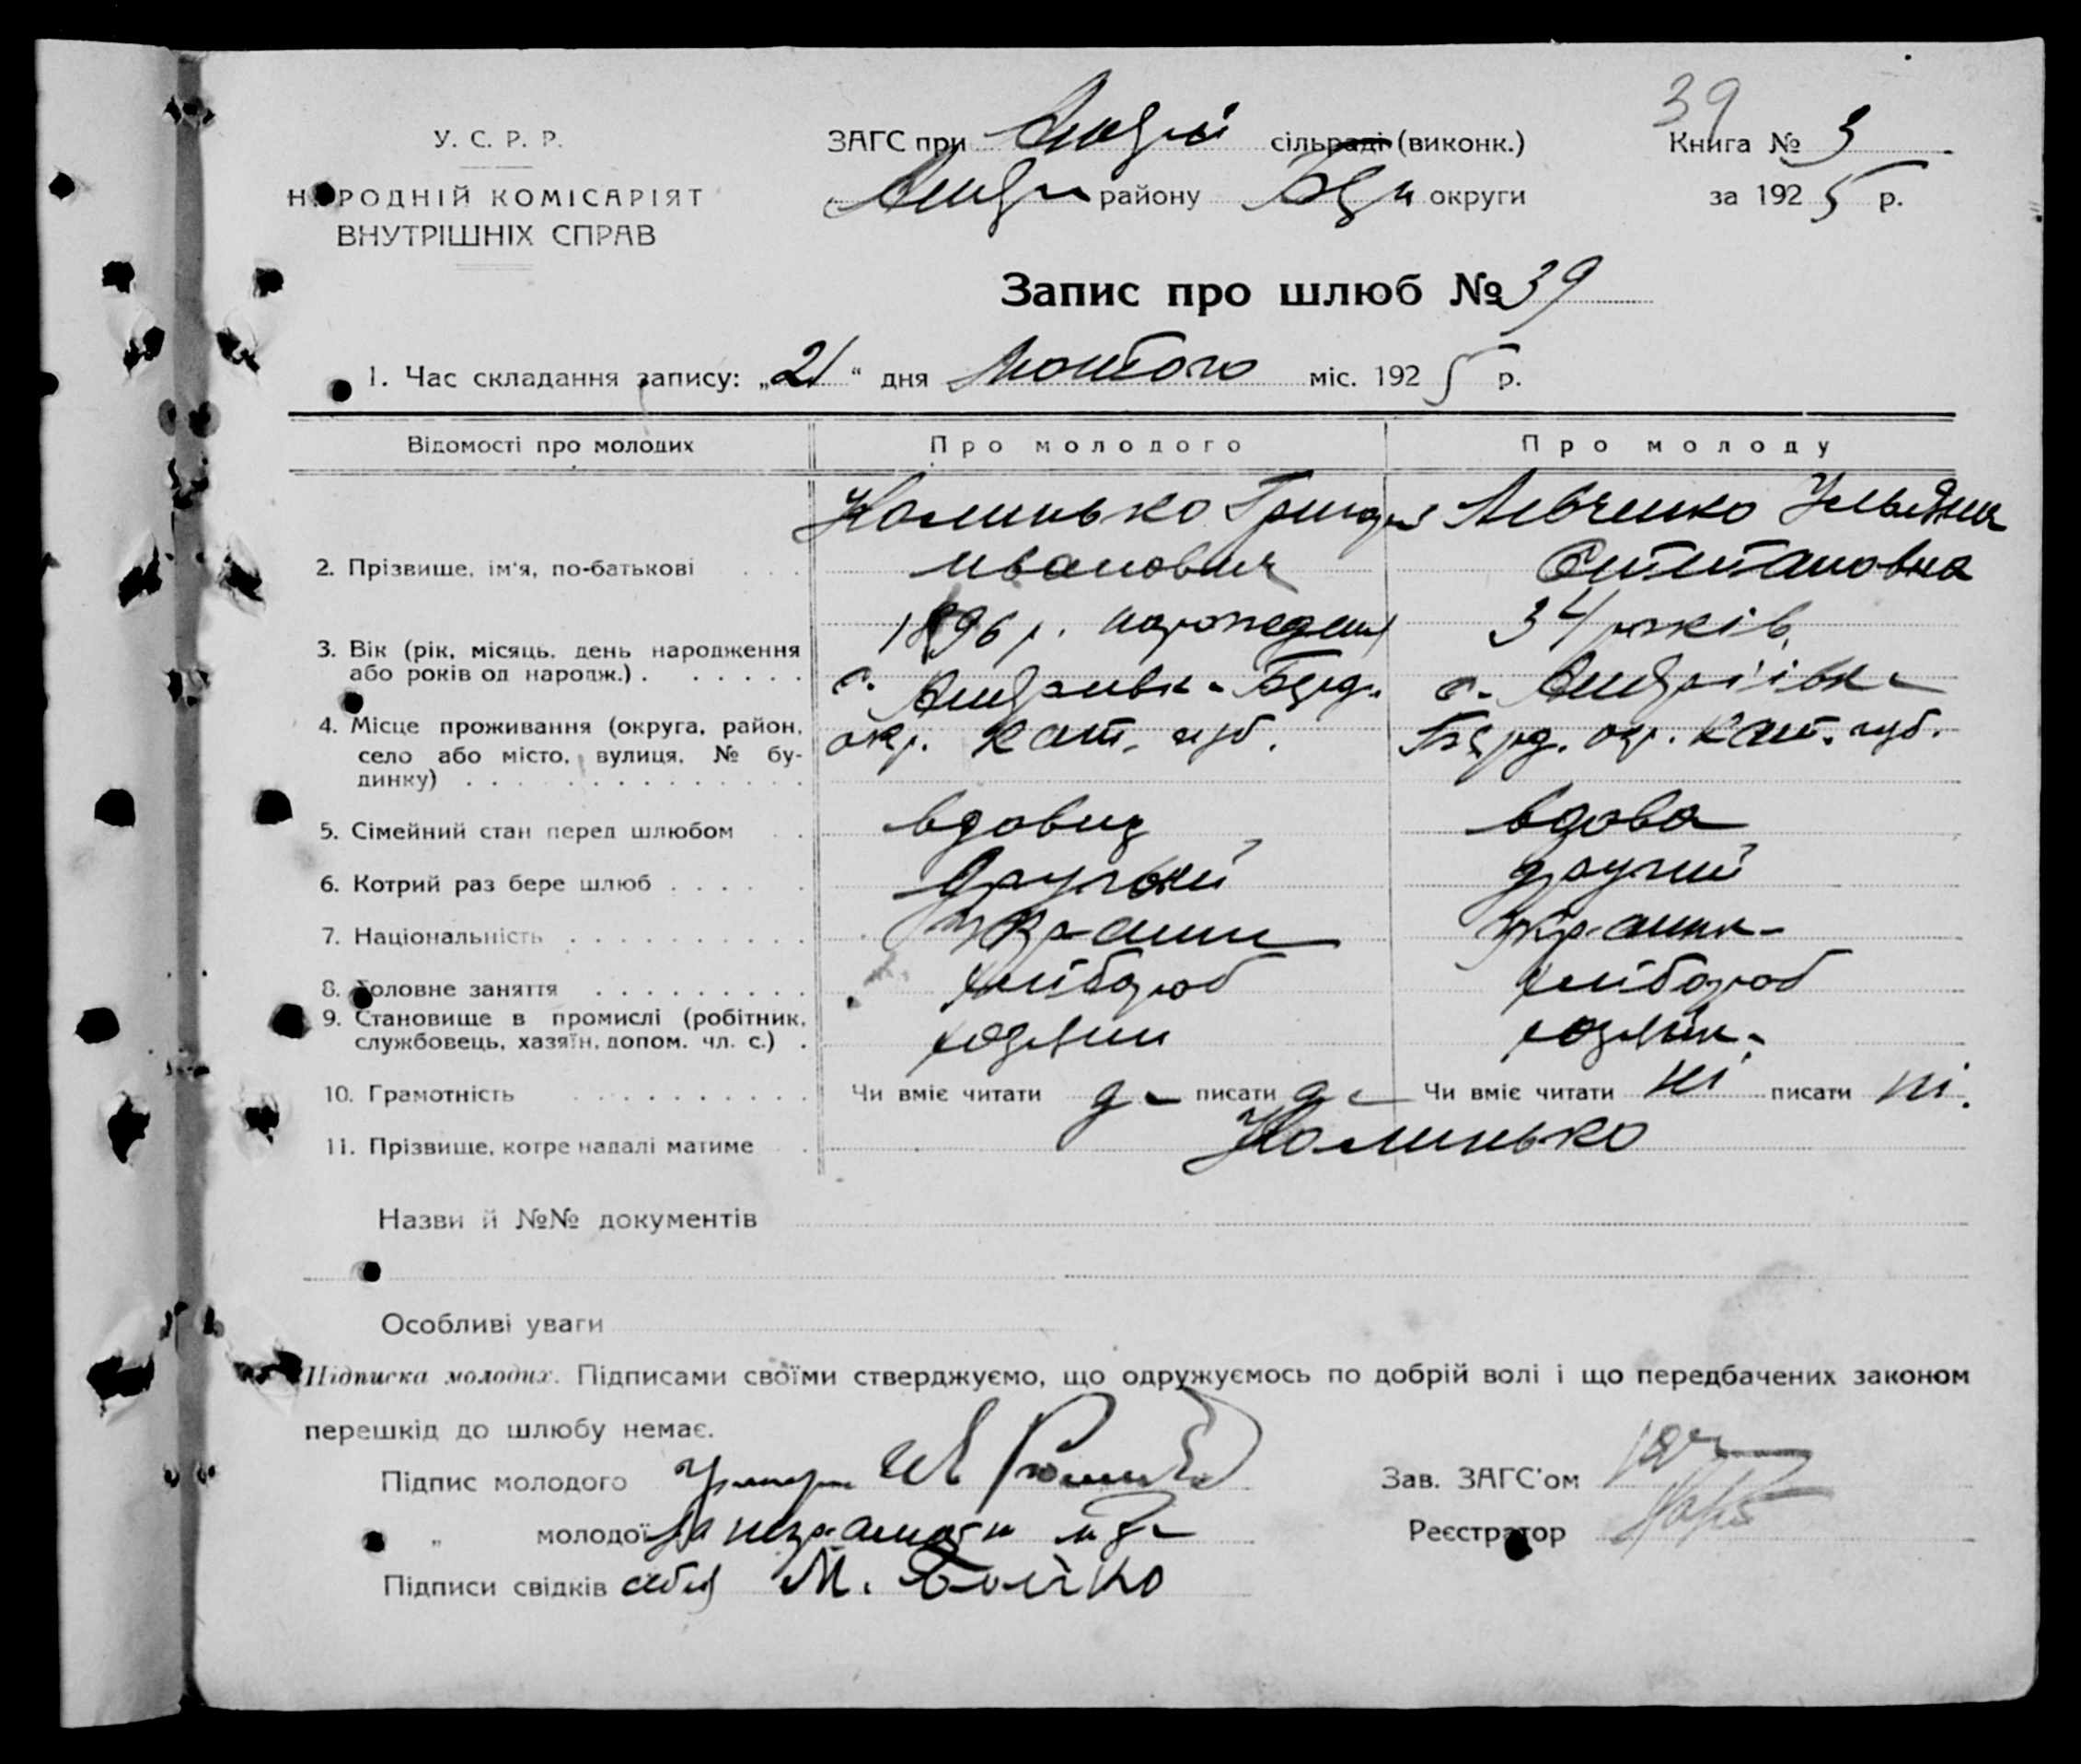 39
У. С. Р. Р.
НАРОДНІЙ КОМІСАРІЯТ
ВНУТРІШНІХ СПРАВ
ЗАГС при сільраді (виконк.)
району округи
Книга № 3
за 1925 р.
Запис про шлюб № 39
1. Час складання запису: „21“ дня Лютого міс. 1925 р.
Відомості про молодих Про молодого Про молоду
Калинько Григор Левченко Ульяна
2. Прізвище, ім'я, по-батькові Иванович Степановна
1896 р. народження 34 років
3. Вік (рік, місяць, день народження
або років од народж.) . с. Андриівка Берд. с. Андріівка
4. Місце проживання (округа, район, окр. Кат. губ. Берд. окр. Кат. губ.
село або місто, вулиця, № бу-
динку)
5. Сімейний стан перед шлюбом вдовец вдова
6. Котрий раз бере шлюб другий другий
7. Національність Украинц Украинка
8. Головне заняття хлібороб хлібороб
9. Становище в промислі (робітник,
службовець, хазяїн, допом. чл. с.) хозяин хозяйка
10. Грамотність Чи вміє читати да писати да Чи вміє читати ні писати ні.
11. Прізвище, котре надалі матиме Калинько
Назви й №№ документів
Особливі уваги
Підписка молодих. Підписами своїми стверджуємо, що одружуємось по добрій волі і що передбачених законом
перешкід до шлюбу немає.
Підпис молодого
Зав. ЗАГС'ом
„ молодої за неграмотн
Реєстратор
Підписи свідків себя М. Бойко